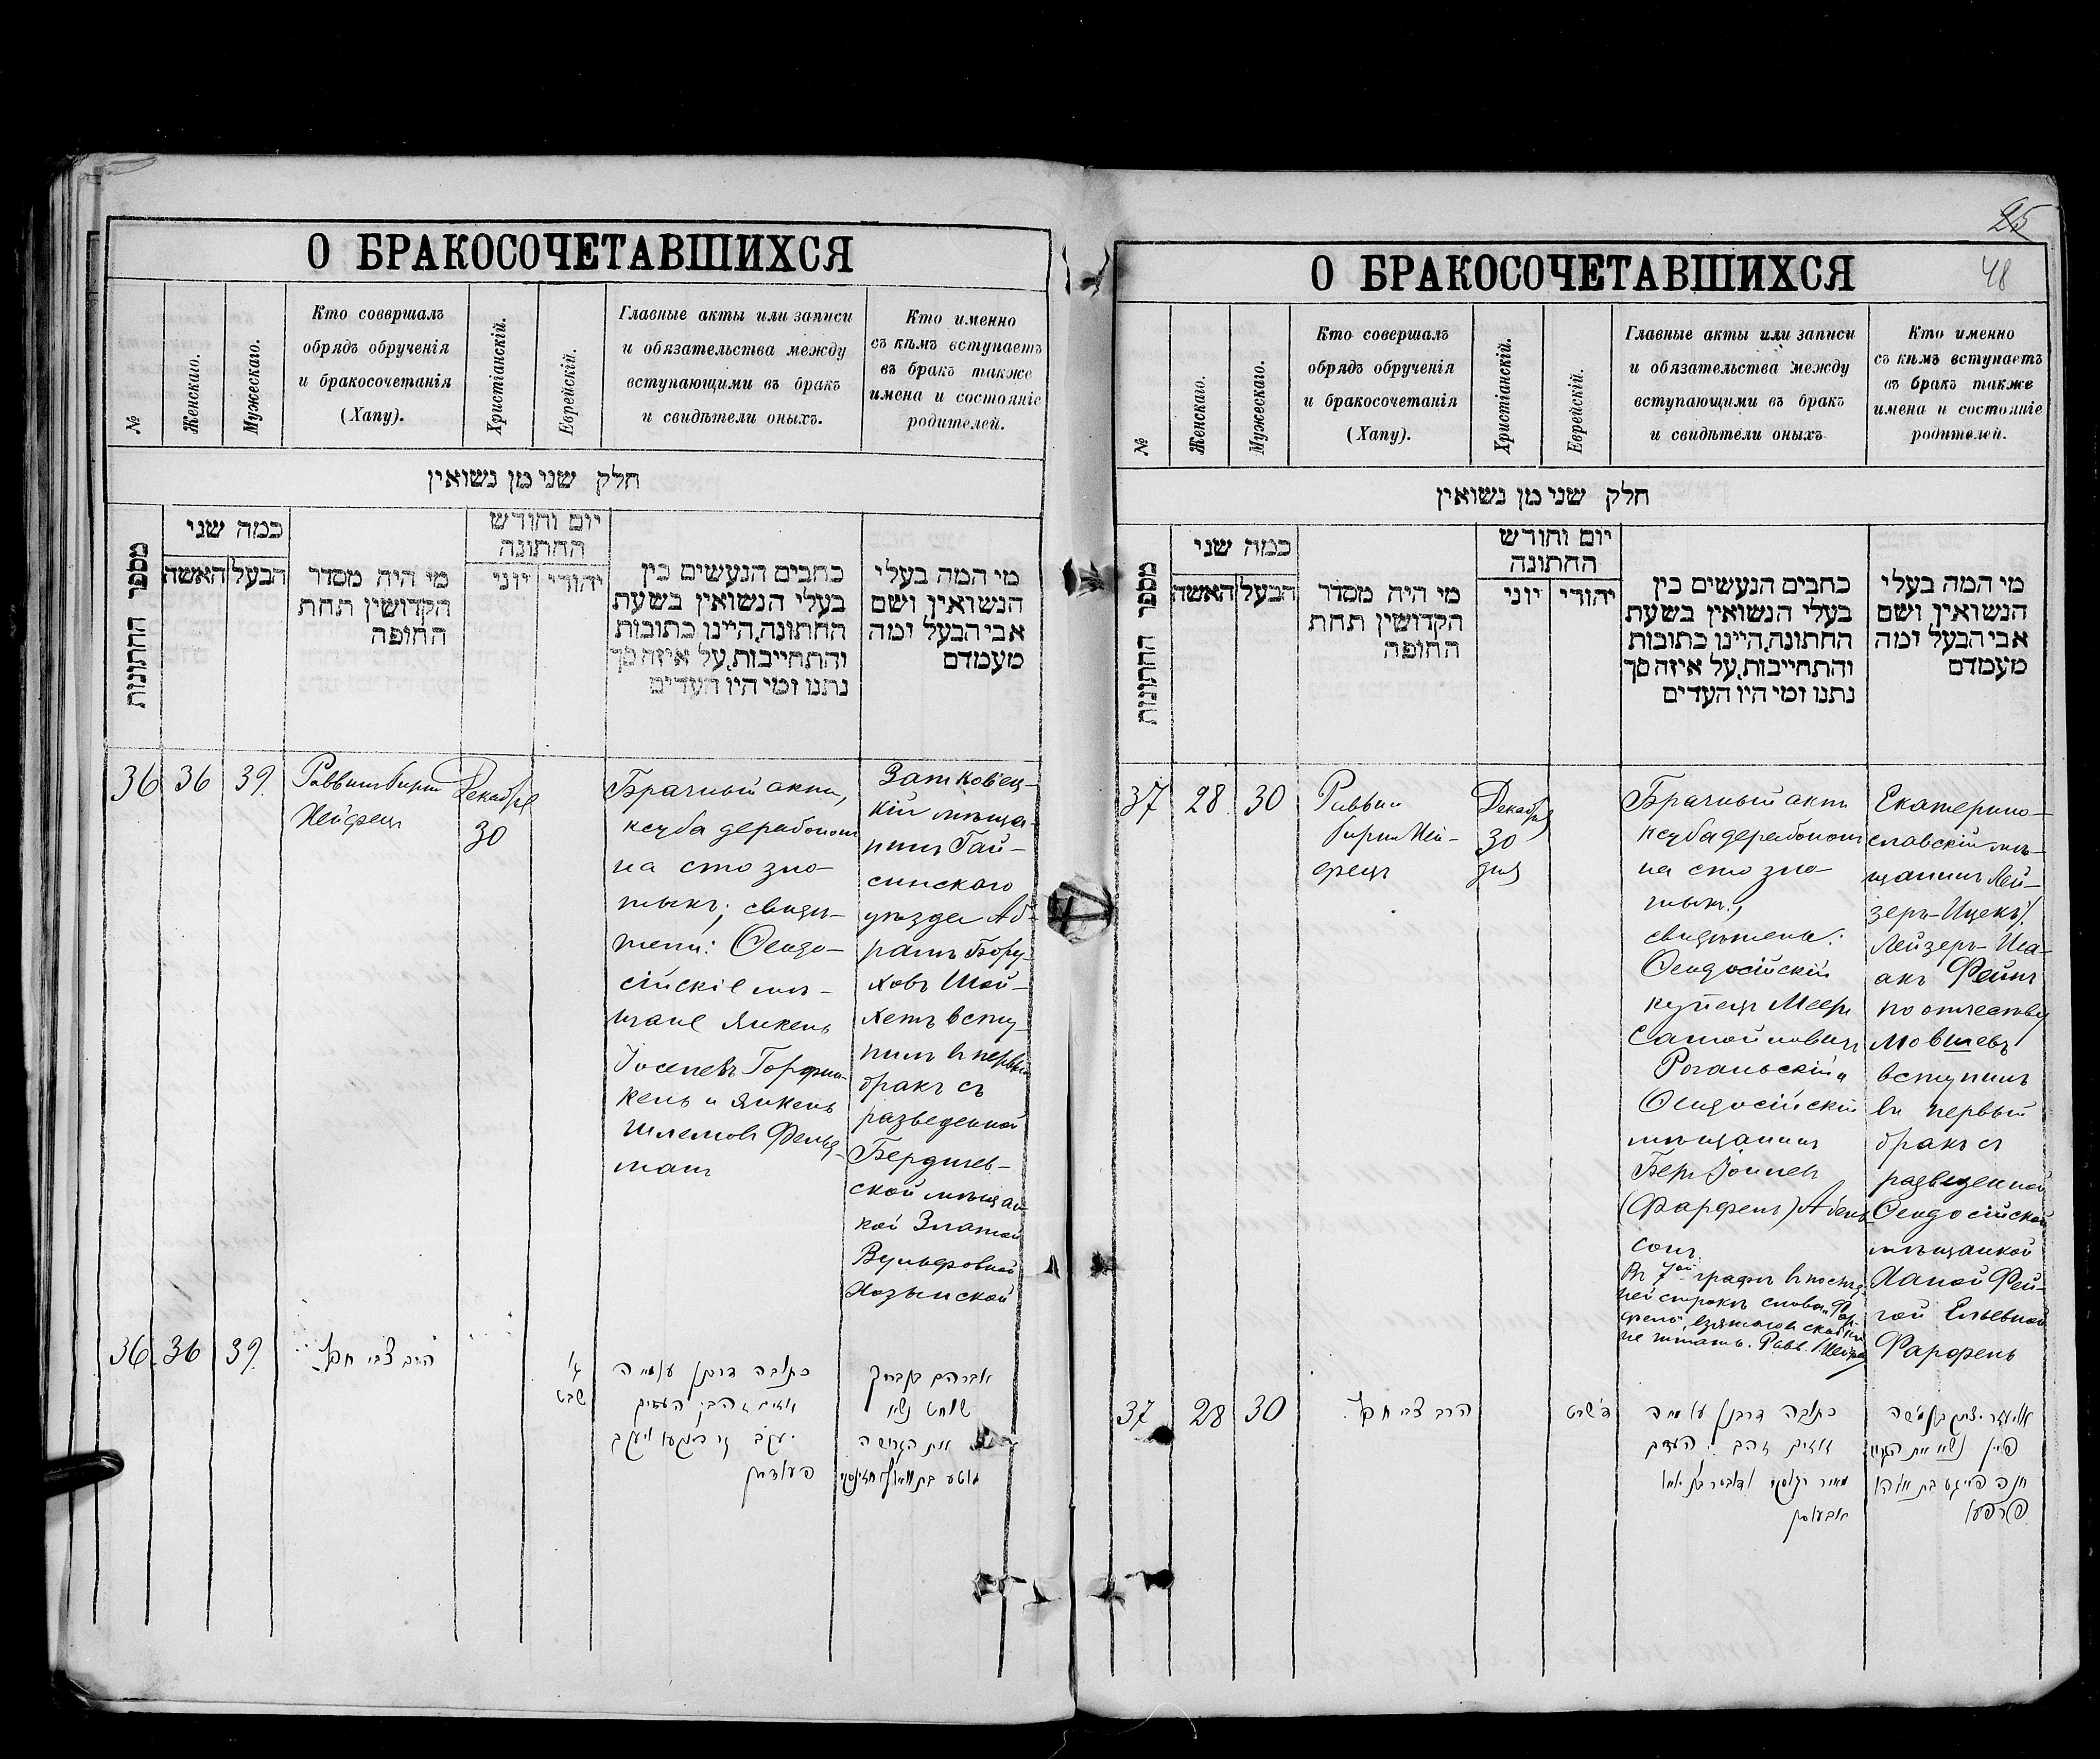 О БРАКОСОЧЕТАВШИХСЯ
№
Женскаго.
Мужескаго.
Кто соверршалъ
обрядъ обрученія
и бракосочетанія
(Хапу).
Христіанскій.
Еврейскій.
Главные акты или записи
и обязательства между
вступающими въ бракъ
и свидѣтели оныхъ.
Кто именно
съ кѣмъ вступаетъ
въ бракъ также
имена и состояніе
родителей.
חלק שני מן נשואין
מספר החתונות
כמה שני
האשה
הבעל
מי היה מסדר
הקדושין תחת
החופה
יום וחודש
החתונה
יוני
יהודי
כתבים הנעשים בין
בעלי הנשואין בשעת
החתונה, היינו כתובות
והתחייבות, על איזה סך
נתנו ומי היו העדים
מי המה בעלי
הנשואין ושם
אבי הבעל ומה
מעמדם
36
36
39.
Раввинъ Гирш
Нейфецъ
Декабря
30
Брачный актъ,
ксуба дерабонон
на сто зло-
тыхъ; свидѣ-
тели: Ѳеодо-
сійскіе мѣ-
щане Янкель
Іосепевъ Горфин-
кель и Янкель
Шлемовъ Фельд-
манъ
Затковец-
кій мѣща-
нинъ Гай-
синскаго
уѣзда Аб-
рамъ Бору-
ховъ Шой-
хетъ всту-
пилъ въ первый
бракъ съ
разведенной
Бердичев-
ской мѣщан-
кой Златой
Вульфовной
Хозинской
36
36
39.
הרב צבי חפץ
שבט
כתובה דרבנן
אברהם בן ברוך
שוחט נשא
את הגרושה
О БРАКОСОЧЕТАВШИХСЯ
25
48
№
Женскаго.
Мужескаго.
Кто совершалъ
обрядъ обрученія
и бракосочетанія
(Хапу).
Христіанскій.
Еврейскій.
Главные акты или записи
и обязательства между
вступающими въ бракъ
и свидѣтели оныхъ
Кто именно
съ кѣмъ вступаетъ
въ бракъ также
имена и состояніе
родителей.
חלק שני מן נשואין
מספר החתונות
כמה שני
האשה
הבעל
מי היה מסדר
הקדושין תחת
החופה
יום וחודש
החתונה
יוני
יהודי
כתבים הנעשים בין
בעלי הנשואין בשעת
החתונה, היינו כתובות
והתחייבות, על איזה סך
נתנו ומי היו העדים
מי המה בעלי
הנשואין ושם
אבי הבעל ומה
מעמדם
37
28
30
Раввин
Гирш Ней-
фецъ
Декабря
30
дня
Брачный актъ
ксуба дерабонон
на сто зло-
тыхъ;
свидѣтели:
Ѳеодосійскій
купецъ Меер
Самойловичъ
Рогальскій и
Ѳеодосійскій
мѣщанинъ
Беръ Іоплев
(Фарфель) Абель-
сонъ.
Въ 7ой графѣ въ послѣд-
ней строкѣ слова „Фар-
фель" взятыя въ скобки
не читать. Равв. Нейфецъ
Екатерино-
славскій мѣ-
щанинъ Лей-
зеръ-Ицекъ/
Лейзеръ-Иса-
акъ Фейнъ
по отчеству
Мовшевъ
вступилъ
въ первый
бракъ съ
разведенной
Ѳеодосійской
мѣщанкой
Ханой Фей-
гой Ельевной
Фарфель
37
28
30
הרב צבי חפץ
שבט
כתובה דרבנן
אליעזר יצחק בן משה
פיין נשא את
חנה פייגע בת אליהו